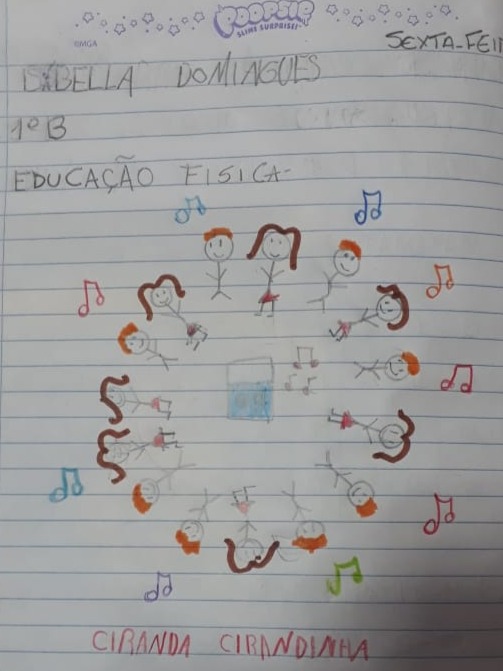 POOPSIE
SLIME SURPRISE!
©MGA
SEXTA-FEI
ISABELLA DOMINGUES
1º B
EDUCAÇÃO FISICA-
CIRANDA CIRANDINHA